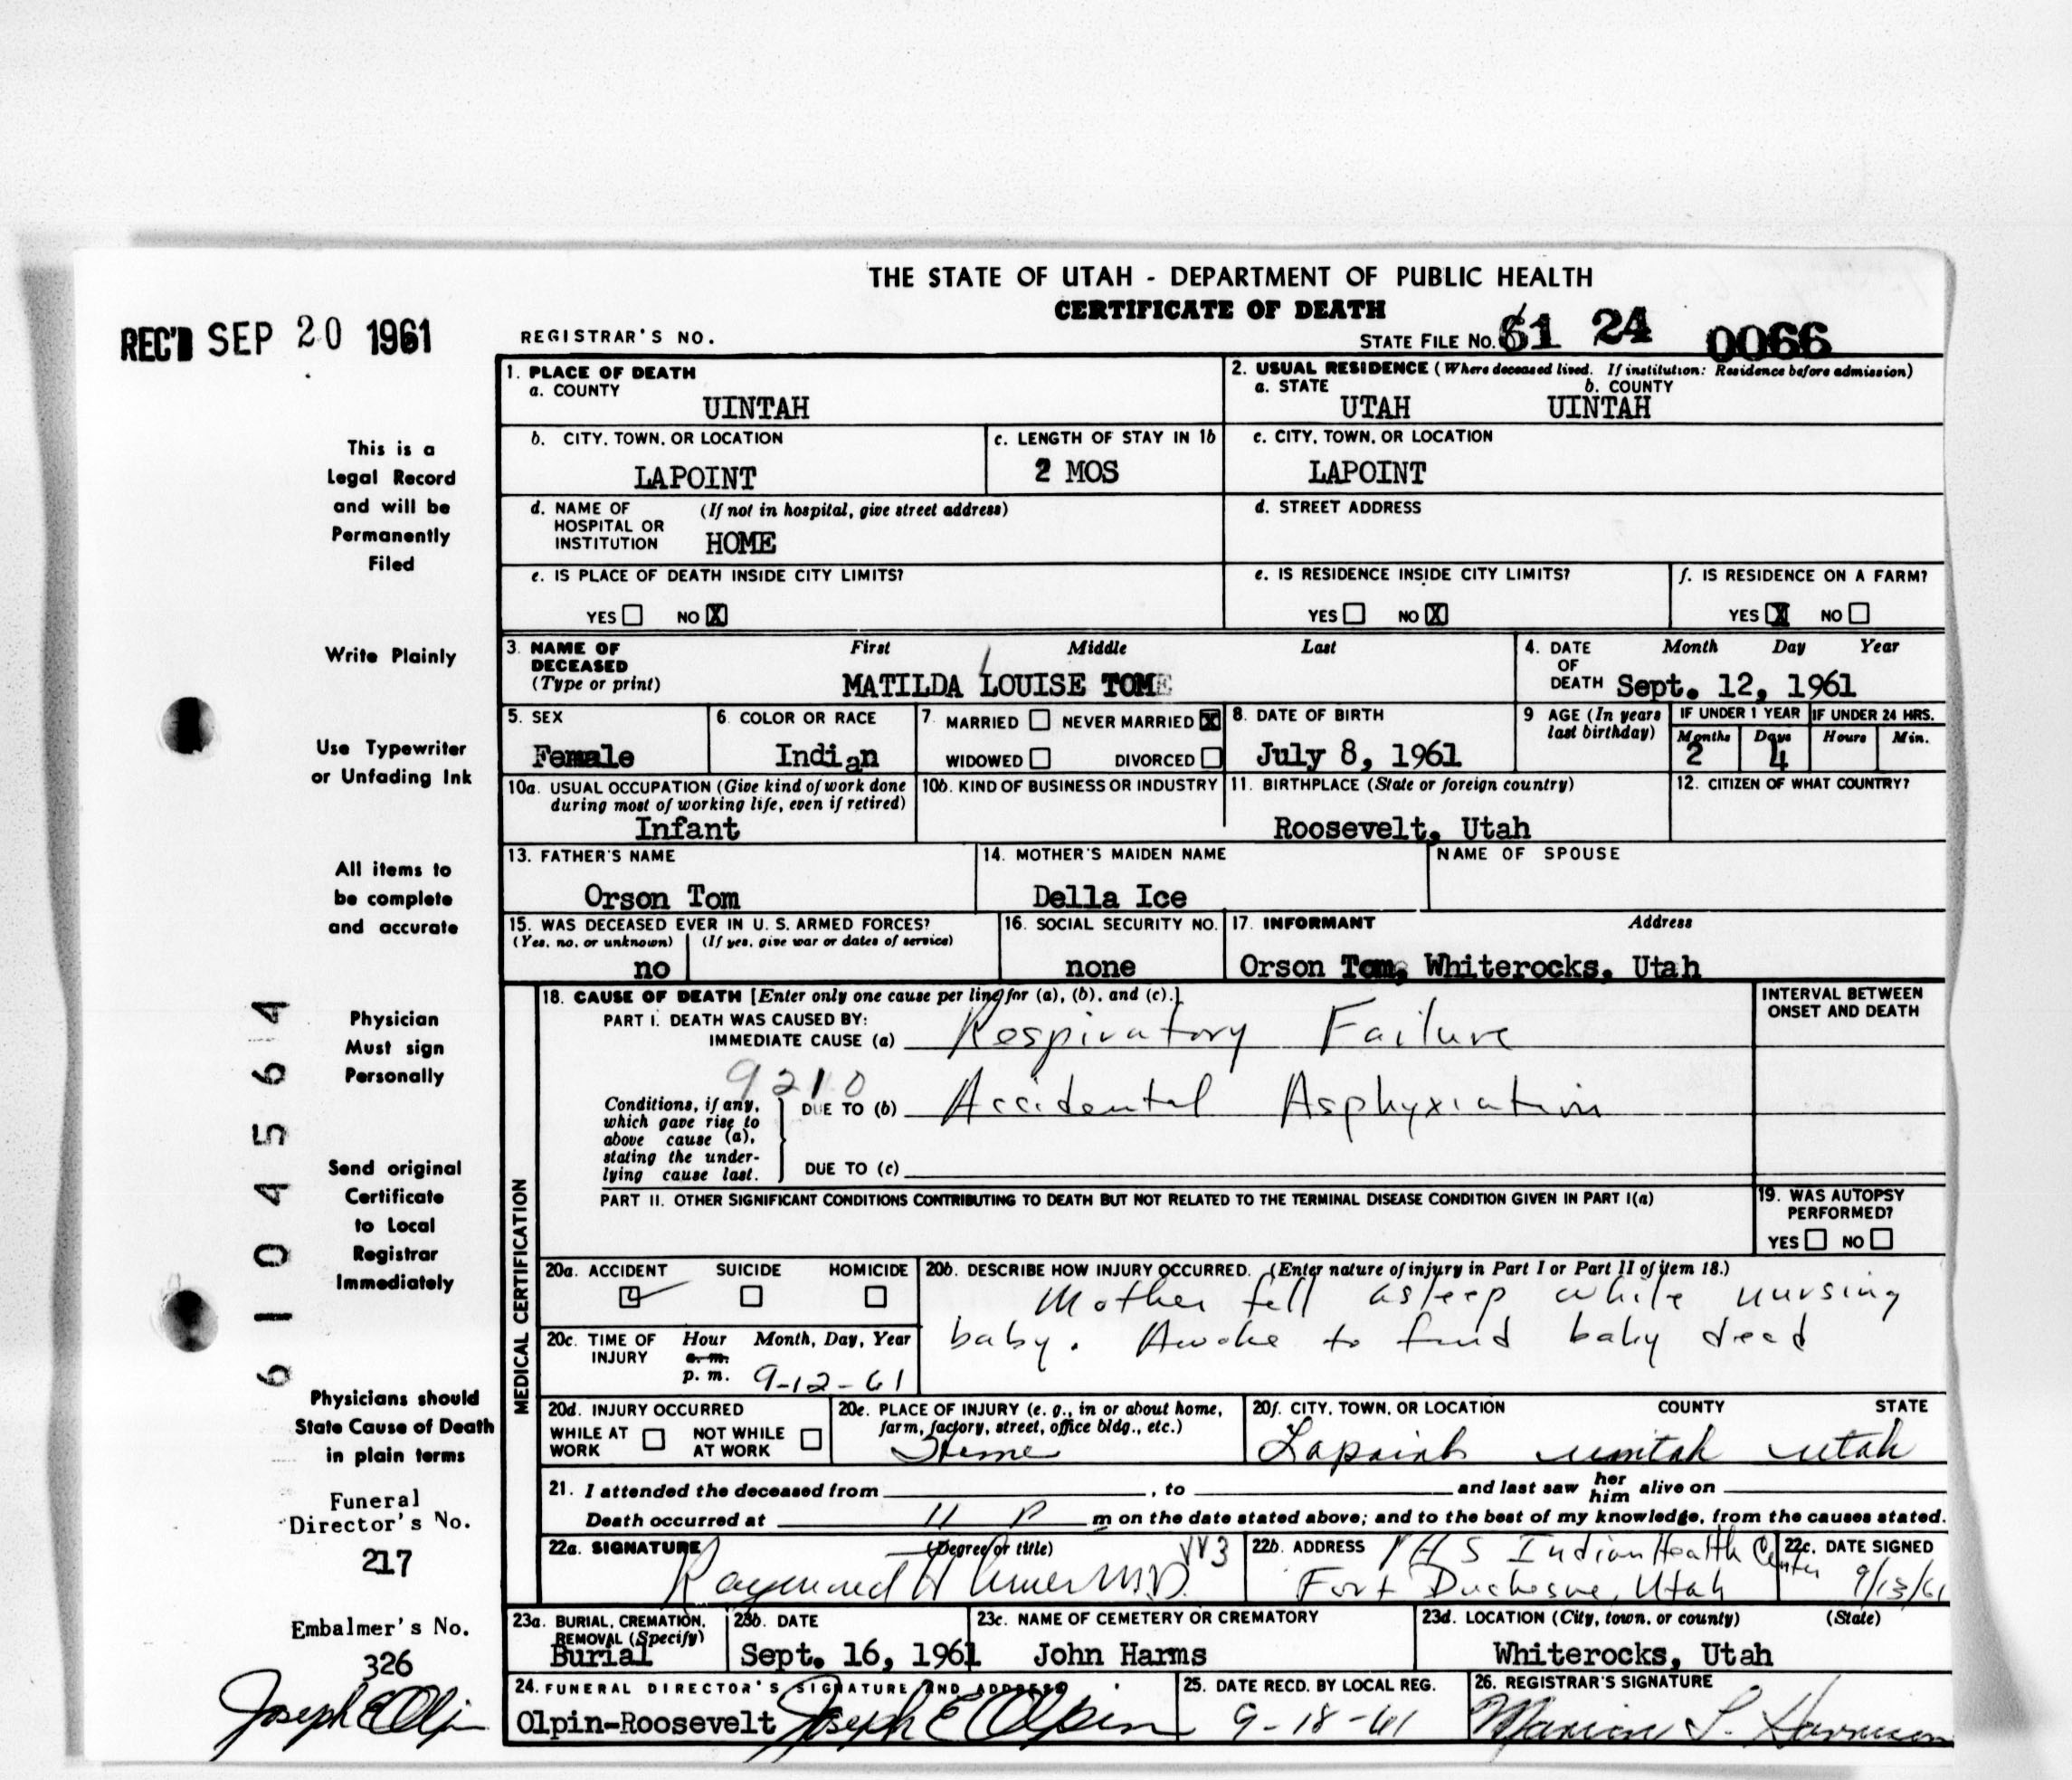 THE STATE OF UTAH - DEPARTMENT OF PUBLIC HEALTH
CERTIFICATE OF DEATH
REC'D SEP 20 1961
REGISTRAR'S NO.
STATE FILE NO. 61 24 0066
1. PLACE OF DEATH
a. COUNTY
UINTAH
2. USUAL RESIDENCE (Where deceased lived. If institution: Residence before admission)
a. STATE b. COUNTY
UTAH UINTAH
b. CITY, TOWN, OR LOCATION
LAPOINT
c. LENGTH OF STAY IN 1b
2 MOS
c. CITY, TOWN, OR LOCATION
LAPOINT
d. NAME OF HOSPITAL OR INSTITUTION (If not in hospital, give street address)
HOME
d. STREET ADDRESS
e. IS PLACE OF DEATH INSIDE CITY LIMITS?
YES NO X
e. IS RESIDENCE INSIDE CITY LIMITS?
YES NO X
f. IS RESIDENCE ON A FARM?
YES X NO
3. NAME OF DECEASED (Type or print)
First Middle Last
MATILDA LOUISE TOME
4. DATE OF DEATH Month Day Year
Sept. 12, 1961
5. SEX
Female
6. COLOR OR RACE
Indian
7. MARRIED NEVER MARRIED X
WIDOWED DIVORCED
8. DATE OF BIRTH
July 8, 1961
9 AGE (In years last birthday)
IF UNDER 1 YEAR IF UNDER 24 HRS.
Months Days Hours Min.
2 4
10a. USUAL OCCUPATION (Give kind of work done during most of working life, even if retired)
Infant
10b. KIND OF BUSINESS OR INDUSTRY
11. BIRTHPLACE (State or foreign country)
Roosevelt, Utah
12. CITIZEN OF WHAT COUNTRY?
13. FATHER'S NAME
Orson Tom
14. MOTHER'S MAIDEN NAME
Della Ice
NAME OF SPOUSE
15. WAS DECEASED EVER IN U. S. ARMED FORCES?
(Yes, no, or unknown) (If yes, give war or dates of service)
no
16. SOCIAL SECURITY NO.
none
17. INFORMANT Address
Orson Tom, Whiterocks, Utah
MEDICAL CERTIFICATION
18. CAUSE OF DEATH [Enter only one cause per line for (a), (b), and (c).]
PART I. DEATH WAS CAUSED BY:
IMMEDIATE CAUSE (a) Respiratory Failure
9210
Conditions, if any, which gave rise to above cause (a), stating the underlying cause last.
DUE TO (b) Accidental Asphyxiation
DUE TO (c)
INTERVAL BETWEEN ONSET AND DEATH
PART II. OTHER SIGNIFICANT CONDITIONS CONTRIBUTING TO DEATH BUT NOT RELATED TO THE TERMINAL DISEASE CONDITION GIVEN IN PART I(a)
19. WAS AUTOPSY PERFORMED?
YES NO
20a. ACCIDENT SUICIDE HOMICIDE
20b. DESCRIBE HOW INJURY OCCURRED. (Enter nature of injury in Part I or Part II of item 18.)
Mother fell asleep while nursing
baby. Awoke to find baby dead
20c. TIME OF INJURY Hour Month, Day, Year
a. m.
p. m. 9-12-61
20d. INJURY OCCURRED
WHILE AT WORK NOT WHILE AT WORK
20e. PLACE OF INJURY (e. g., in or about home, farm, factory, street, office bldg., etc.)
Home
20f. CITY, TOWN, OR LOCATION COUNTY STATE
Lapoint uintah utah
21. I attended the deceased from , to and last saw her him alive on
Death occurred at 11 P m on the date stated above; and to the best of my knowledge, from the causes stated.
22a. SIGNATURE (Degree or title)
Raymond H M.D.
22b. ADDRESS PHS Indian Health Center
Fort Duchesne, Utah
22c. DATE SIGNED
9/13/61
23a. BURIAL, CREMATION, REMOVAL (Specify)
Burial
23b. DATE
Sept. 16, 1961
23c. NAME OF CEMETERY OR CREMATORY
John Harms
23d. LOCATION (City, town, or county) (State)
Whiterocks, Utah
24. FUNERAL DIRECTOR'S SIGNATURE AND ADDRESS
Olpin-Roosevelt Joseph E Olpin
25. DATE RECD. BY LOCAL REG.
9-18-61
26. REGISTRAR'S SIGNATURE
Marion L.
This is a
Legal Record
and will be
Permanently
Filed
Write Plainly
Use Typewriter
or Unfading Ink
All items to
be complete
and accurate
Physician
Must sign
Personally
Send original
Certificate
to Local
Registrar
Immediately
Physicians should
State Cause of Death
in plain terms
Funeral
Director's No.
217
Embalmer's No.
326
Joseph E Olpin
61045564